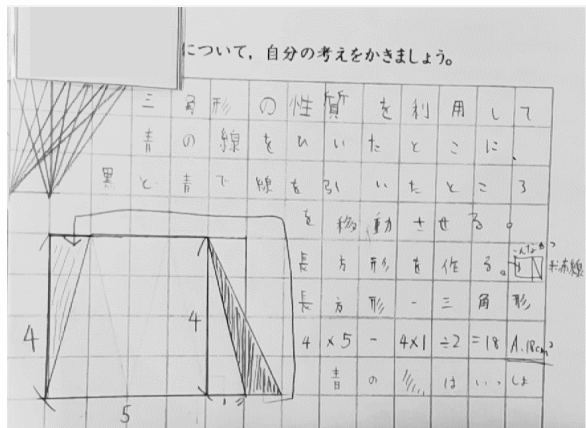 について，自分の考えをかきましょう。
三角形の性質を利用して
青の線をひいたとこに、
黒と青で線を引いたところ
を移動させる。
長方形を作る。
こんなかんじ
赤線
長方形-三角形
4×5-4×1÷2=18 A.18cm²
青の はいっしょ
4
4
5
1